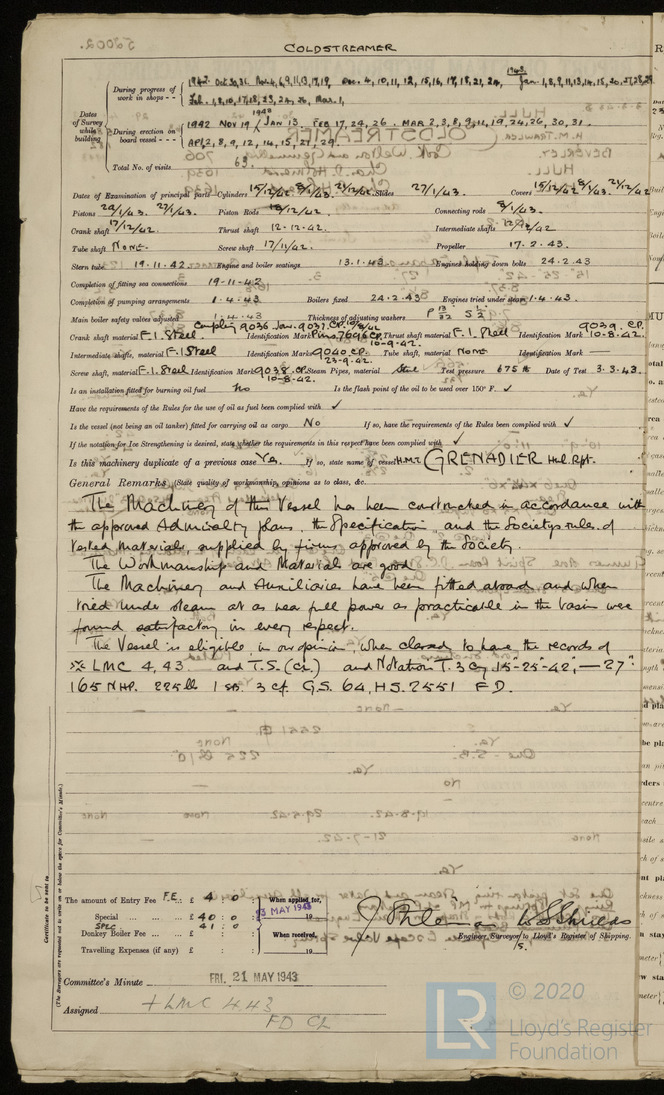 COLDSTREAMER
During progress of work in shops - -
1942. Oct 30, 31. Nov. 4, 6, 9, 11, 13, 17, 19, Dec. 4, 10, 11, 12, 15, 16, 17, 18, 21, 24, 1943. Jan. 1, 8, 9, 11, 13, 14, 15, 20, 27, 28, 29.
Feb. 1, 8, 10, 17, 18, 23, 24, 26, Mar. 1,
Dates of Survey while building
During erection on board vessel - - -
1942 Nov 19 / 1943 Jan 13 Feb 17, 24, 26. Mar 2, 3, 8, 9, 11, 19, 24, 26, 30, 31.
Apl 2, 8, 9, 12, 14, 15, 21, 29.
Total No. of visits 63.
Dates of Examination of principal parts—Cylinders 15/12/42 8/1/43. 21/12/42 Slides 27/1/43. Covers 15/12/42 8/1/43. 21/12/42
Pistons 22/1/43. 27/1/43. Piston Rods 18/12/42. Connecting rods 8/1/43.
Crank shaft 17/12/42. Thrust shaft 12-12-42. Intermediate shafts 12/12/42
Tube shaft None. Screw shaft 17/11/42. Propeller 17.2.43.
Stern tube 19-11-42. Engine and boiler seatings 13.1.43. Engines holding down bolts 24.2.43
Completion of fitting sea connections 19-11-42
Completion of pumping arrangements 1.4.43. Boilers fixed 24.2.43 Engines tried under steam 1.4.43.
Main boiler safety valves adjusted 1.4.43 Thickness of adjusting washers P 13/32 S 1/2
Crank shaft material F.I. Steel Coupling 9036 Jnr. 9037. C.P. 10/8/42 Identification Mark Pins. 7696 C.P. 10-9-42. Thrust shaft material F.I. Steel Identification Mark 9039. C.P. 10-8-42.
Intermediate shafts, material F.I. Steel Identification Marks 9040. C.P. 23-9-42. Tube shaft, material None Identification Mark ———
Screw shaft, material F.I. Steel. Identification Mark 9038. C.P. 10-8-42. Steam Pipes, material Steel Test pressure 675 lb Date of Test 3.3.43.
Is an installation fitted for burning oil fuel No Is the flash point of the oil to be used over 150° F. ✓
Have the requirements of the Rules for the use of oil as fuel been complied with ✓
Is the vessel (not being an oil tanker) fitted for carrying oil as cargo No If so, have the requirements of the Rules been complied with ✓
If the notation for Ice Strengthening is desired, state whether the requirements in this respect have been complied with ✓
Is this machinery duplicate of a previous case Yes. If so, state name of vessel H.M.T. GRENADIER Hul. Rpt.
General Remarks (State quality of workmanship, opinions as to class, &c.
The Machinery of this Vessel has been constructed in accordance with
the approved Admiralty plans, the Specification and the Societys rules, of
tested materials, supplied by firms approved by the Society.
The Workmanship and Material are good.
The Machinery and Auxiliaries have been fitted aboard and when
tried under steam at as near full power as practicable in the basin were
found satisfactory in every respect.
The Vessel is eligible in our opinion, when classed to have the records of
LMC 4,43 and T.S. (CL) and Notation T. 3 Cy. 15"-25"-42", — 27".
165 NHP. 225 lb 1 SB. 3 cf. G.S. 64, H.S. 2551 F D.
Certificate to be sent to
(The Surveyors are requested not to write on or below the space for Committee's Minute.)
The amount of Entry Fee F.E. .. £ 4 : 0 : When applied for,
Special ... ... £ 40 : 0 : 13 MAY 1943 19
SPEC 41 : 0
Donkey Boiler Fee ... £ : : When received,
Travelling Expenses (if any) £ : : 19
Engineer Surveyor to Lloyd's Register of Shipping.
Committee's Minute FRI. 21 MAY 1943
Assigned + LMC 4 43
FD CL
LR
© 2020
Lloyd's Register
Foundation